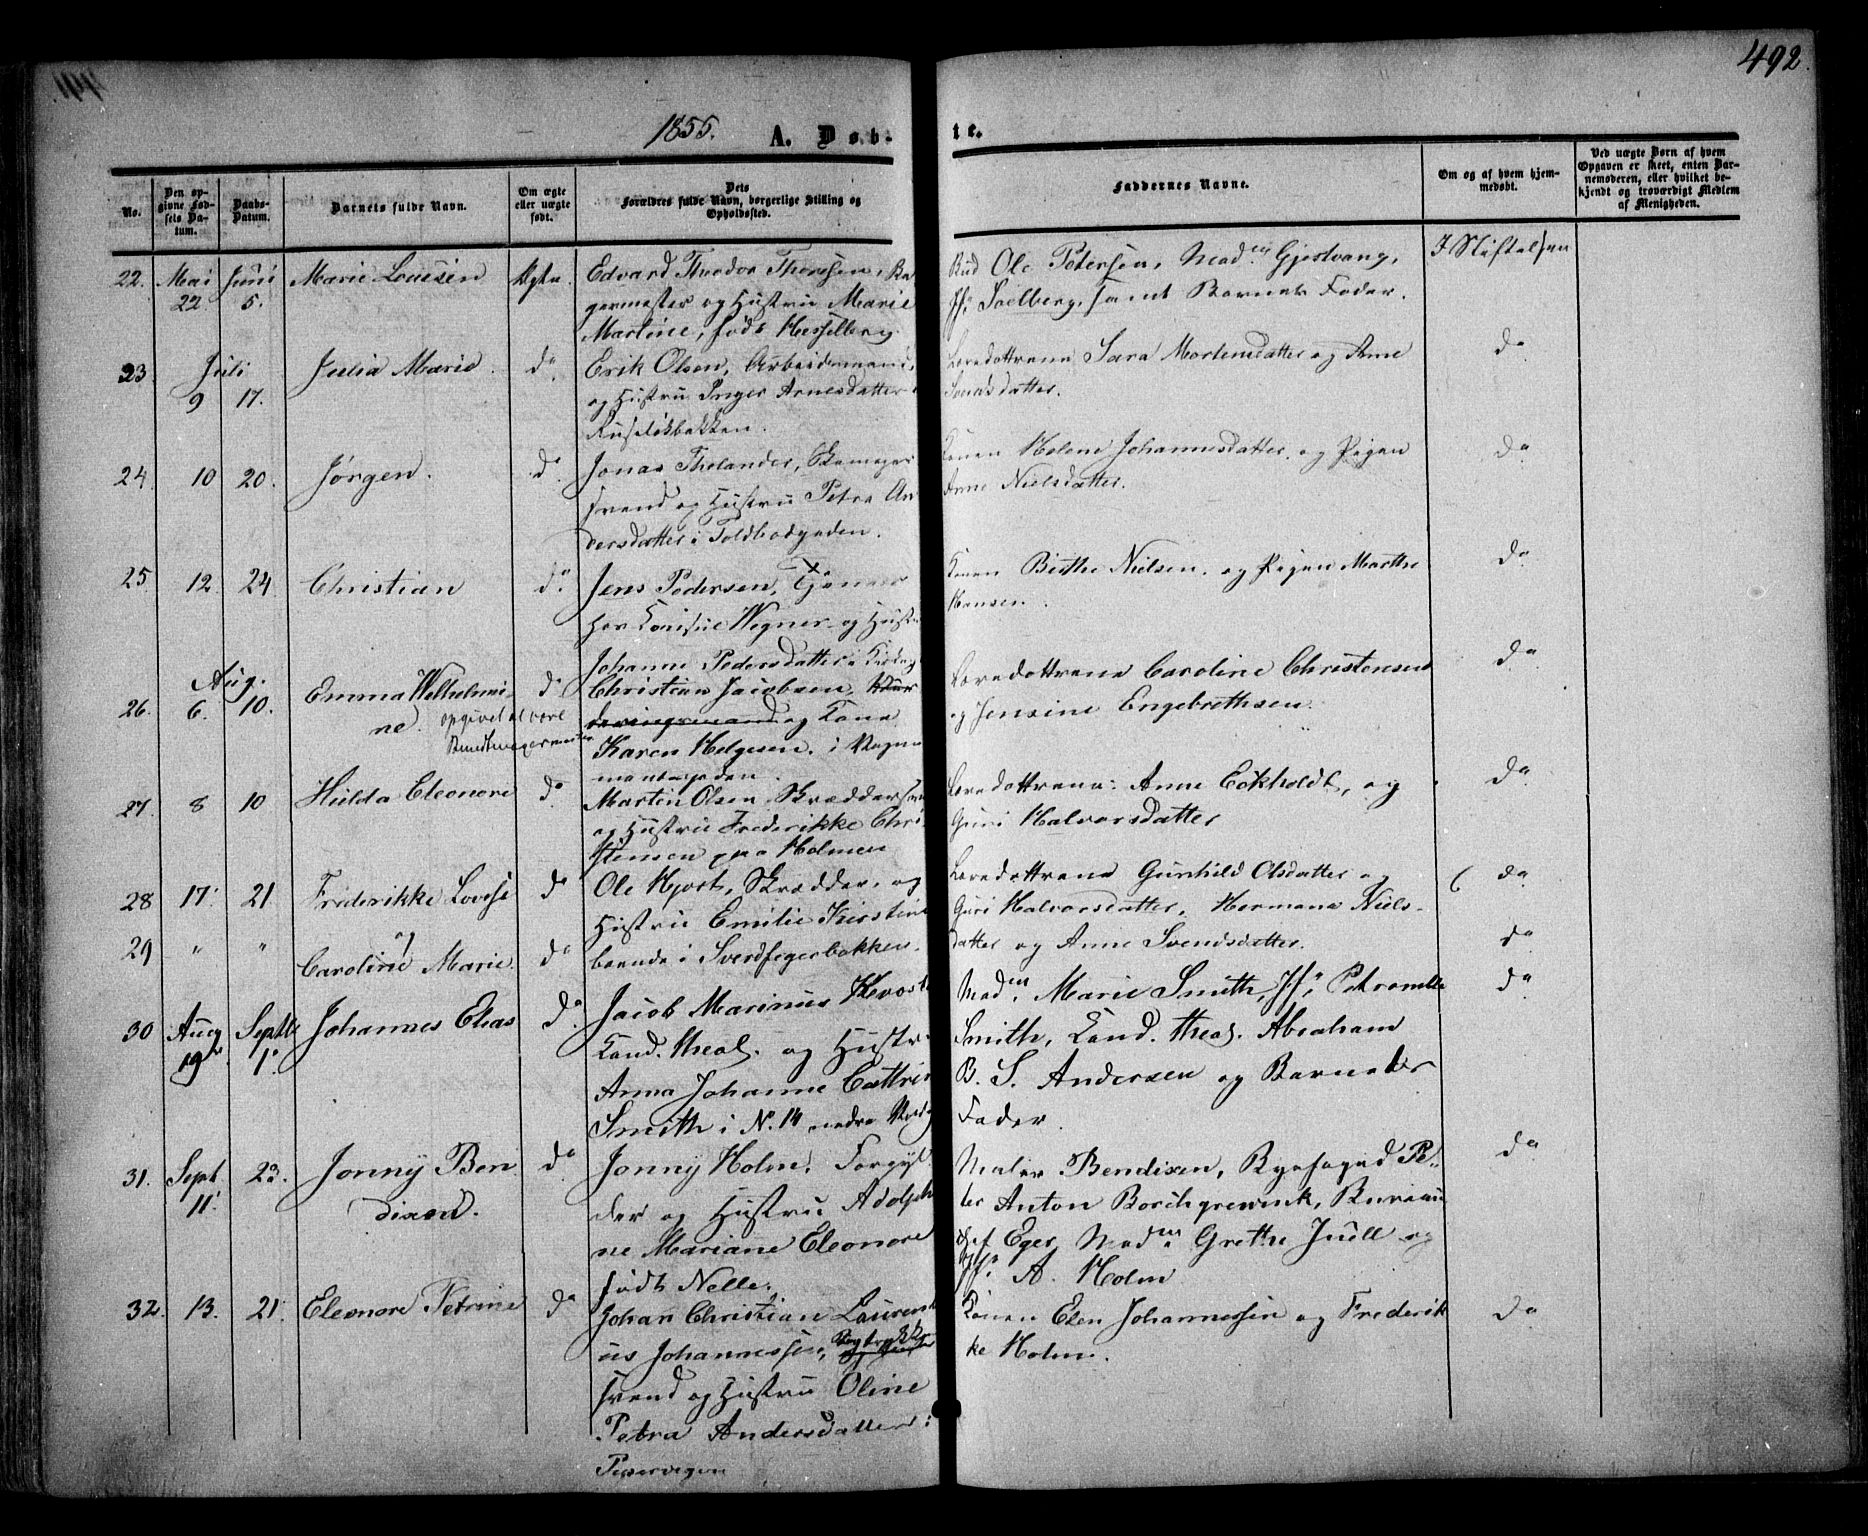 492.
1855. A. Døb-
te.
No.
Den op-
givne Fød-
sels Da-
tum.
Daabs-
Datum.
Barnets fulde Navn.
Om ægte
eller uægte
født.
Dets
Forældres fulde Navn, borgerlige Stilling og
Opholdssted.
Faddernes Navne.
Om og af hvem hjem-
medøbt.
Ved uægte Børn af hvem
Opgaven er skeet, enten Bar-
nemoderen, eller hvilket be-
kjendt og troværdigt Medlem
af Menigheden.
22. Mai 22. Juni 5. Marie Lovisen Ægte.
Edvard Theodor Thoresen, Ba
germester og Hustru Marie
Martine, født Hesselberg.
Bud Ole Petersen, Madm. Gjestvang,
Jf. Solberg, samt Barnets Fader.
I Stiftelsen
23 Juli 9 17. Julia Marie. do.
Erik Olsen, Arbeidsmand,
og Hustru Inger Arnesdatter
Ruseløkbakken.
Læredøttrene Sara Mortensdatter og Anne
datter.
do
24. 10 20. Jørgen. do.
Jonas Thelander, Skomager
svend og Hustru Petra An
dersdatter i Toldbodgaden.
Konen Helene Johannesdatter, og Pigen
Anne Nielsdatter.
do
25 12. 24 Christian do.
Jens Pedersen, Tjener
hos Consul Wegner og Hustru
Johanne Pedersdatter i
Konen Birthe Nielsen, og Pigen Marthe
Hansen.
do
26. Aug. 6. 10. Emma Wilhelmi-
ne. opgivet at være
Bundtmagermester
do
Christian Jacobsen,
og Kone
Karen Helgesen. i Vogn
mandsgaden.
Læredøttrene Caroline Christensen
og Jensine Engebrethsen.
do
27. 8 10 Hulda Eleonore do.
Martin Olsen Skræddersvend
og Hustru Frederikke Chri
stensen paa Holmen
Læredøttrene: Anne Eckholdt, og
Guri Halvorsdatter
do
28 17. 21 Friderikke Lovise do
Ole Hjort, Skrædder, og
Hustru Emilie Kirstine
Læredøttrene Gunhild Olsdatter og
Guri Halvorsdatter, Hermana Niels-
do
29 " " og
Caroline Marie. do
boende i Sverdfegerbakken.
datter og Anne Svendsdatter.
do
30 Aug 19. Septb 1. Johannes Elias do.
Jacob Marinus
Cand. theol. og Hustru
Anna Johanne Cathrine
Smith i N. 14 nedre
Madm. Marie Smith, Jf. Petronelle
Smith, Cand. theol. Abraham
B. S. Andersen og Barnets
Fader.
do
31. Sept. 11. 23. Jonny Ben
dixen. do
Jonny Holm. Forgyl
der og Hustru Adolphi
ne Mariane Eleonore
født Nelle.
Maler Bendixen, Byefoged Pe-
ter Anton Borchgrewink, Bureau
chef Eger, Madm. Grethe Juell og
Jf. A. Holm
do
32. 13. 21. Eleonore Petrine do
Johan Christian Laurenti
us Johannessen, Bogtrykker
svend og Hustru Oline
Petra Andersdatter i
Pilestredet
Konen Elen Johannessen og Frederik
ke Holm.
do